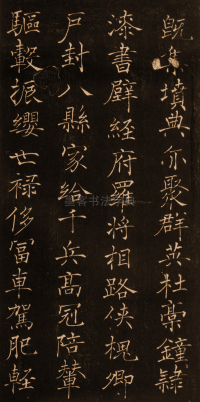 既集墳典亦聚群英杜稾鍾隸
漆書壁經府羅將相路俠槐卿
户封八縣家給千兵髙冠陪輦
驅轂振纓世禄侈富車駕肥輕